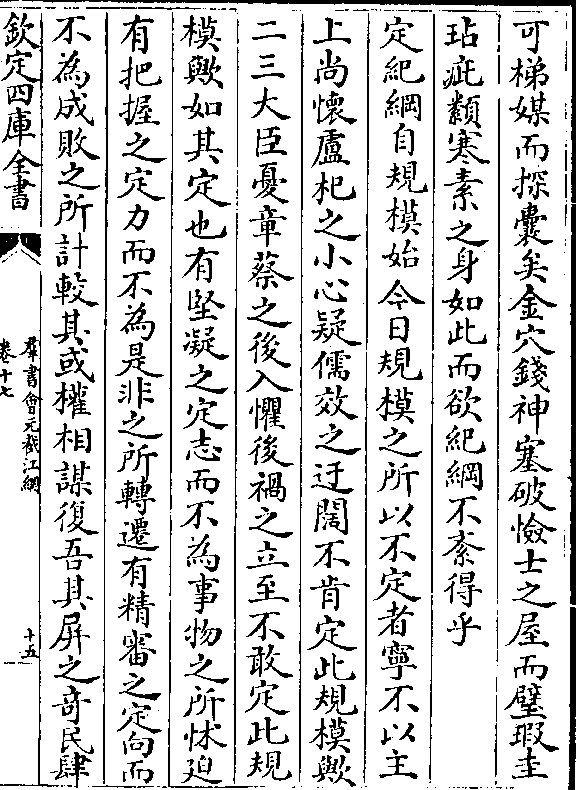 可梯媒而探囊矣金穴錢神塞破憸士之屋而璧瑕圭
玷疵纇寒素之身如此而欲紀綱不紊得乎
定紀綱自規模始今日規模之所以不定者寧不以主
上尚懷盧杞之小心疑儒效之迂闊不肯定此規模歟
二三大臣憂章蔡之後入懼後禍之立至不敢定此規
模歟如其定也有堅凝之定志而不為事物之所怵迫
有把握之定力而不為是非之所轉遷有精審之定向而
不為成敗之所計較其或權相謀復吾其屏之奇民肆
欽定四庫全書
羣書會元截江網
卷十七
十五